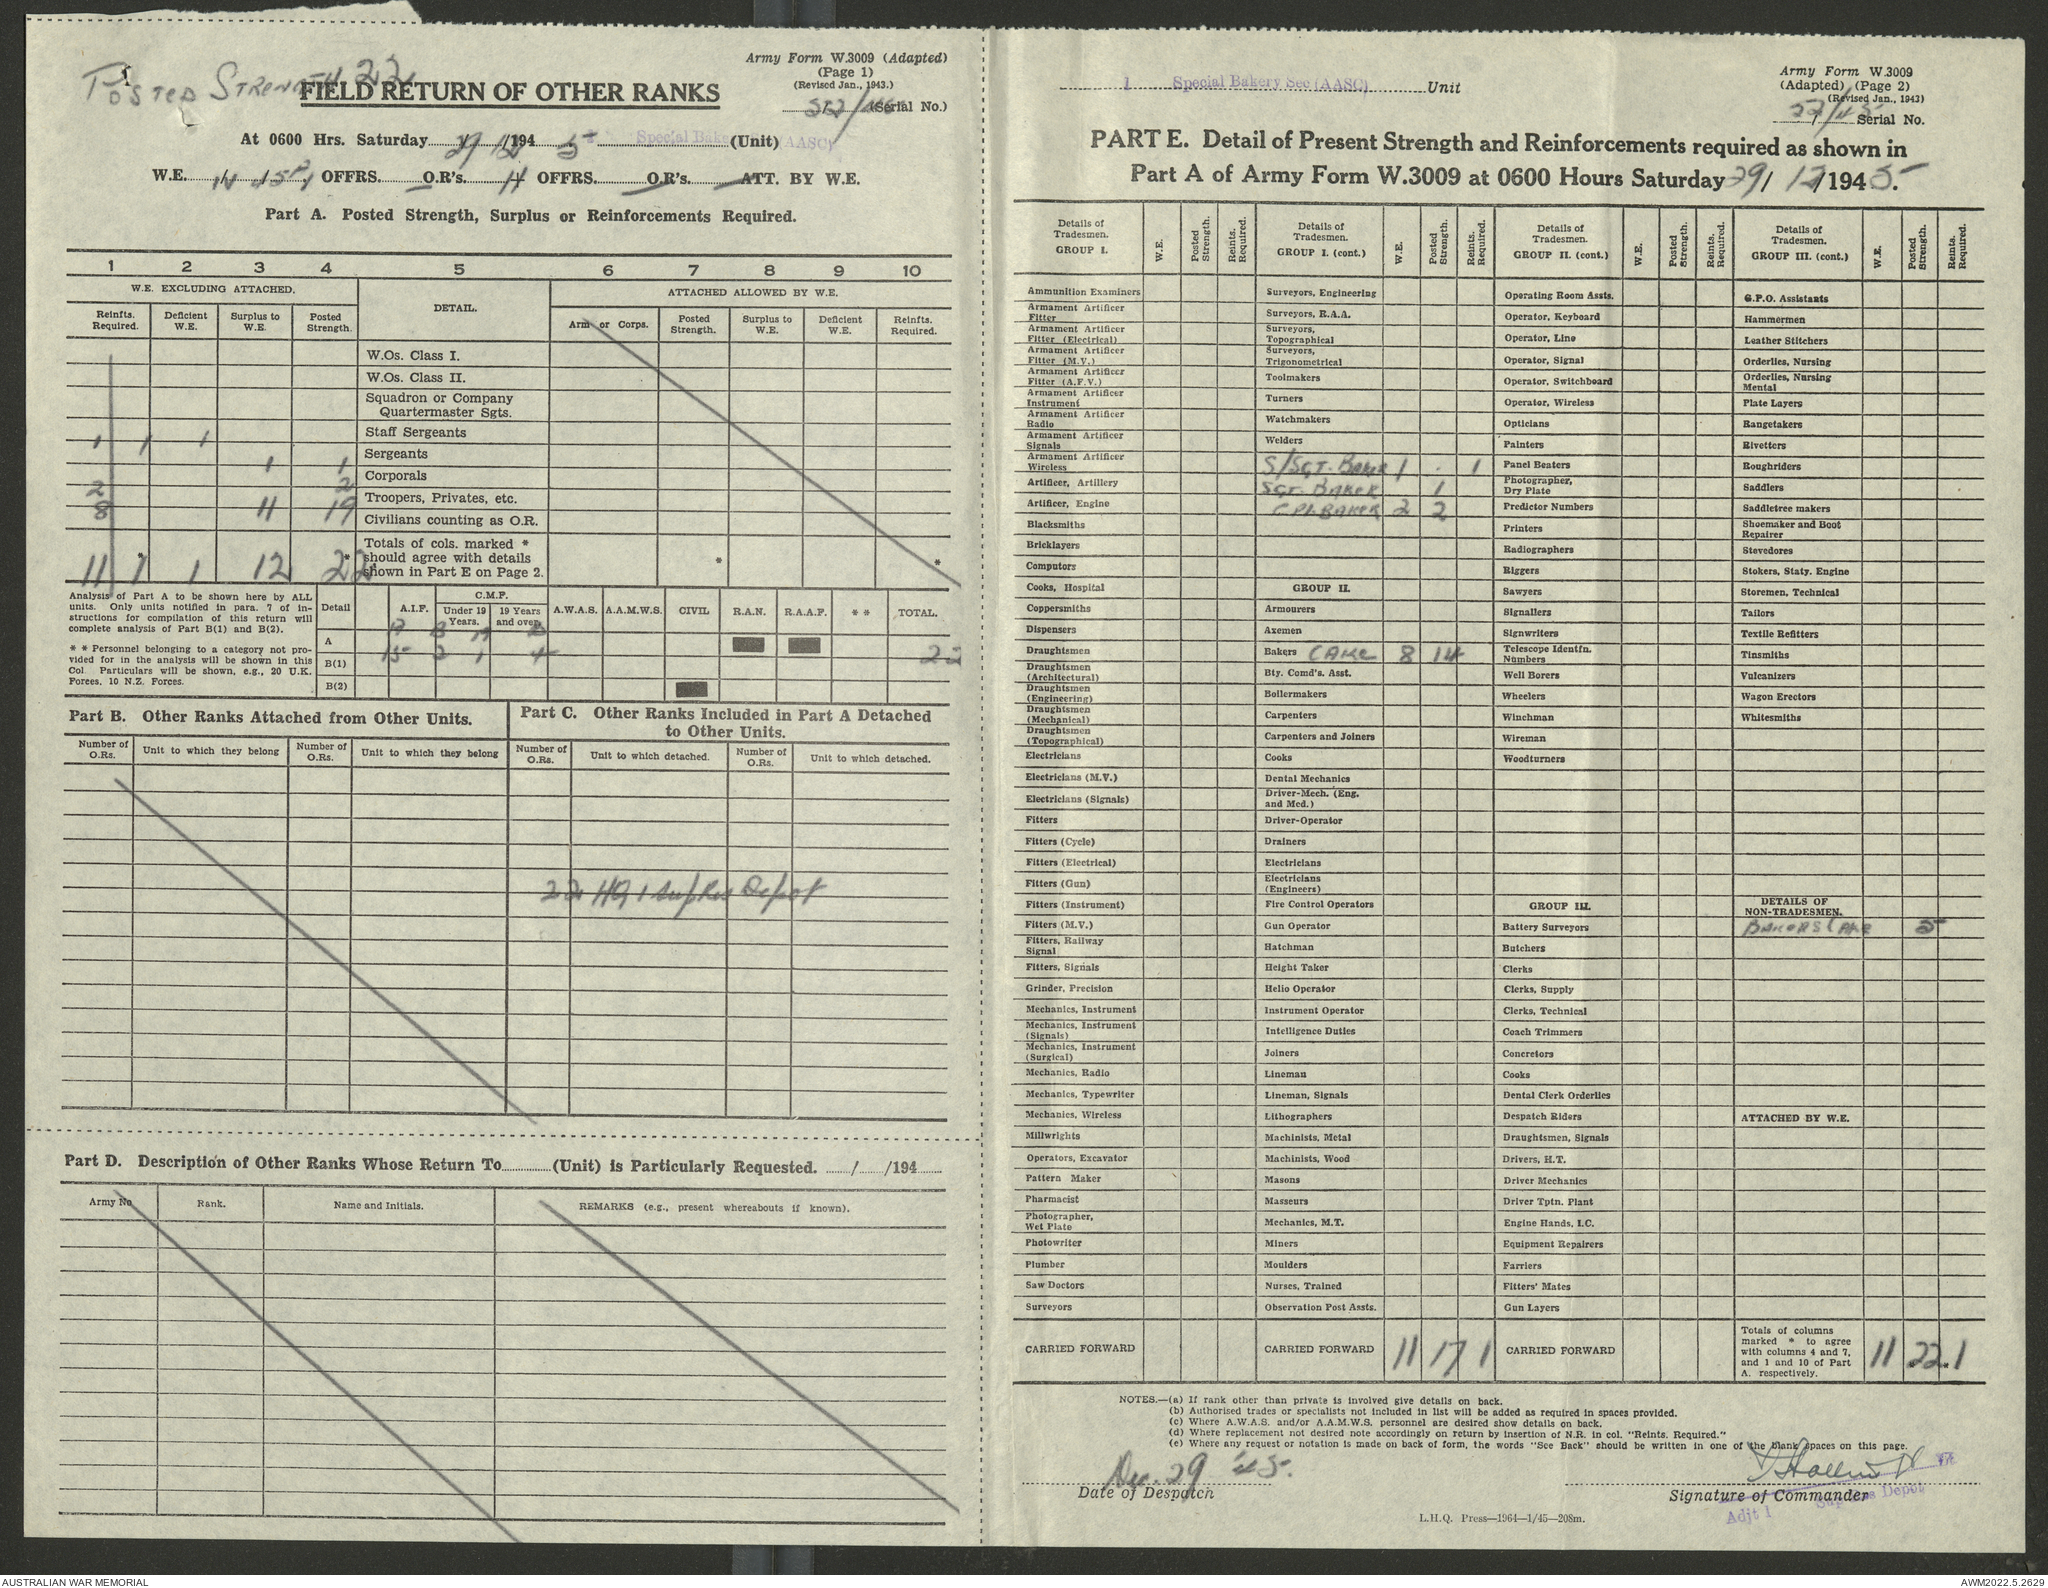 Army Form W.3009 (Adapted)
(Page 1)
(Revised Jan., 1943.)
(Serial No.)
POSTED STRENGTH 22
FIELD RETURN OF OTHER RANKS
At 0600 Hrs. Saturday 29/12/1945 Special Bakery Sec (AASC) (Unit)
W.E. OFFRS. O.R's. 11 OFFRS. O.R's. ATT. BY W.E.
Part A. Posted Strength, Surplus or Reinforcements Required.
1 2 3 4 5 6 7 8 9 10
W.E. EXCLUDING ATTACHED. DETAIL. ATTACHED ALLOWED BY W.E.
Reinfts. Required. Deficient W.E. Surplus to W.E. Posted Strength. Arm or Corps. Posted Strength. Surplus to W.E. Deficient W.E. Reinfts. Required.
W.Os. Class I.
W.Os. Class II.
Squadron or Company
Quartermaster Sgts.
1 1 1 Staff Sergeants
1 1 Sergeants
2 2 Corporals
8 11 19 Troopers, Privates, etc.
Civilians counting as O.R.
Totals of cols. marked *
should agree with details
shown in Part E on Page 2.
11 1 1 12 22 * * *
Analysis of Part A to be shown here by ALL
units. Only units notified in para. 7 of in-
structions for compilation of this return will
complete analysis of Part B(1) and B(2).
* * Personnel belonging to a category not pro-
vided for in the analysis will be shown in this
Col Particulars will be shown, e.g., 20 U.K.
Forces, 10 N.Z. Forces.
Detail A.I.F. C.M.F. Under 19 Years. 19 Years and over. A.W.A.S. A.A.M.W.S. CIVIL R.A.N. R.A.A.F. * * TOTAL.
A 15 2 1 4 22
B(1)
B(2)
Part B. Other Ranks Attached from Other Units.
Number of O.Rs. Unit to which they belong Number of O.Rs. Unit to which they belong
Part C. Other Ranks Included in Part A Detached
to Other Units.
Number of O.Rs. Unit to which detached. Number of O.Rs. Unit to which detached.
22 HQ 1 Sup Res Depot
Part D. Description of Other Ranks Whose Return To (Unit) is Particularly Requested. / /194
Army No Rank. Name and Initials. REMARKS (e.g., present whereabouts if known).
1 Special Bakery Sec (AASC) Unit
Army Form W.3009
(Adapted) (Page 2)
(Revised Jan., 1943)
Serial No.
PART E. Detail of Present Strength and Reinforcements required as shown in
Part A of Army Form W.3009 at 0600 Hours Saturday 29/12/1945.
Details of Tradesmen. GROUP I. W.E. Posted Strength. Reints. Required.
Ammunition Examiners
Armament Artificer Fitter
Armament Artificer Fitter (Electrical)
Armament Artificer Fitter (M.V.)
Armament Artificer Fitter (A.F.V.)
Armament Artificer Instrument
Armament Artificer Radio
Armament Artificer Signals
Armament Artificer Wireless
Artificer, Artillery
Artificer, Engine
Blacksmiths
Bricklayers
Computors
Cooks, Hospital
Coppersmiths
Dispensers
Draughtsmen
Draughtsmen (Architectural)
Draughtsmen (Engineering)
Draughtsmen (Mechanical)
Draughtsmen (Topographical)
Electricians
Electricians (M.V.)
Electricians (Signals)
Fitters
Fitters (Cycle)
Fitters (Electrical)
Fitters (Gun)
Fitters (Instrument)
Fitters (M.V.)
Fitters, Railway Signal
Fitters, Signals
Grinder, Precision
Mechanics, Instrument
Mechanics, Instrument (Signals)
Mechanics, Instrument (Surgical)
Mechanics, Radio
Mechanics, Typewriter
Mechanics, Wireless
Millwrights
Operators, Excavator
Pattern Maker
Pharmacist
Photographer, Wet Plate
Photowriter
Plumber
Saw Doctors
Surveyors
CARRIED FORWARD
Details of Tradesmen. GROUP I. (cont.) W.E. Posted Strength. Reints. Required.
Surveyors, Engineering
Surveyors, R.A.A.
Surveyors, Topographical
Surveyors, Trigonometrical
Toolmakers
Turners
Watchmakers
Welders
S/SGT. BAKER 1 . 1
SGT. BAKER 1
CPL. BAKER 2 2
GROUP II.
Armourers
Axemen
Bakers CAKE 8 14
Bty. Comd's. Asst.
Boilermakers
Carpenters
Carpenters and Joiners
Cooks
Dental Mechanics
Driver-Mech. (Eng. and Med.)
Driver-Operator
Drainers
Electricians
Electricians (Engineers)
Fire Control Operators
Gun Operator
Hatchman
Height Taker
Helio Operator
Instrument Operator
Intelligence Duties
Joiners
Lineman
Lineman, Signals
Lithographers
Machinists, Metal
Machinists, Wood
Masons
Masseurs
Mechanics, M.T.
Miners
Moulders
Nurses, Trained
Observation Post Assts.
CARRIED FORWARD 11 17 1
Details of Tradesmen. GROUP II. (cont.) W.E. Posted Strength. Reints. Required.
Operating Room Assts.
Operator, Keyboard
Operator, Line
Operator, Signal
Operator, Switchboard
Operator, Wireless
Opticians
Painters
Panel Beaters
Photographer, Dry Plate
Predictor Numbers
Printers
Radiographers
Riggers
Sawyers
Signallers
Signwriters
Telescope Identfn. Numbers
Well Borers
Wheelers
Winchman
Wireman
Woodturners
GROUP III.
Battery Surveyors
Butchers
Clerks
Clerks, Supply
Clerks, Technical
Coach Trimmers
Concretors
Cooks
Dental Clerk Orderlies
Despatch Riders
Draughtsmen, Signals
Drivers, H.T.
Driver Mechanics
Driver Tptn. Plant
Engine Hands, I.C.
Equipment Repairers
Farriers
Fitters' Mates
Gun Layers
CARRIED FORWARD
Details of Tradesmen. GROUP III. (cont.) W.E. Posted Strength. Reints. Required.
G.P.O. Assistants
Hammermen
Leather Stitchers
Orderlies, Nursing
Orderlies, Nursing Mental
Plate Layers
Rangetakers
Rivetters
Roughriders
Saddlers
Saddletree makers
Shoemaker and Boot Repairer
Stevedores
Stokers, Staty. Engine
Storemen, Technical
Tailors
Textile Refitters
Tinsmiths
Vulcanizers
Wagon Erectors
Whitesmiths
DETAILS OF NON-TRADESMEN.
BAKERS CAKE 5
ATTACHED BY W.E.
Totals of columns
marked * to agree
with columns 4 and 7,
and 1 and 10 of Part
A. respectively. 11 22 1
NOTES.—(a) If rank other than private is involved give details on back.
(b) Authorised trades or specialists not included in list will be added as required in spaces provided.
(c) Where A.W.A.S. and/or A.A.M.W.S. personnel are desired show details on back.
(d) Where replacement not desired note accordingly on return by insertion of N.R. in col. "Reints. Required."
(e) Where any request or notation is made on back of form, the words "See Back" should be written in one of the blank spaces on this page.
Dec. 29 '45.
Date of Despatch
Signature of Commander
Adjt 1 Supplies Depot
L.H.Q. Press—1964—1/45—208m.
AUSTRALIAN WAR MEMORIAL
AWM2022.5.2629